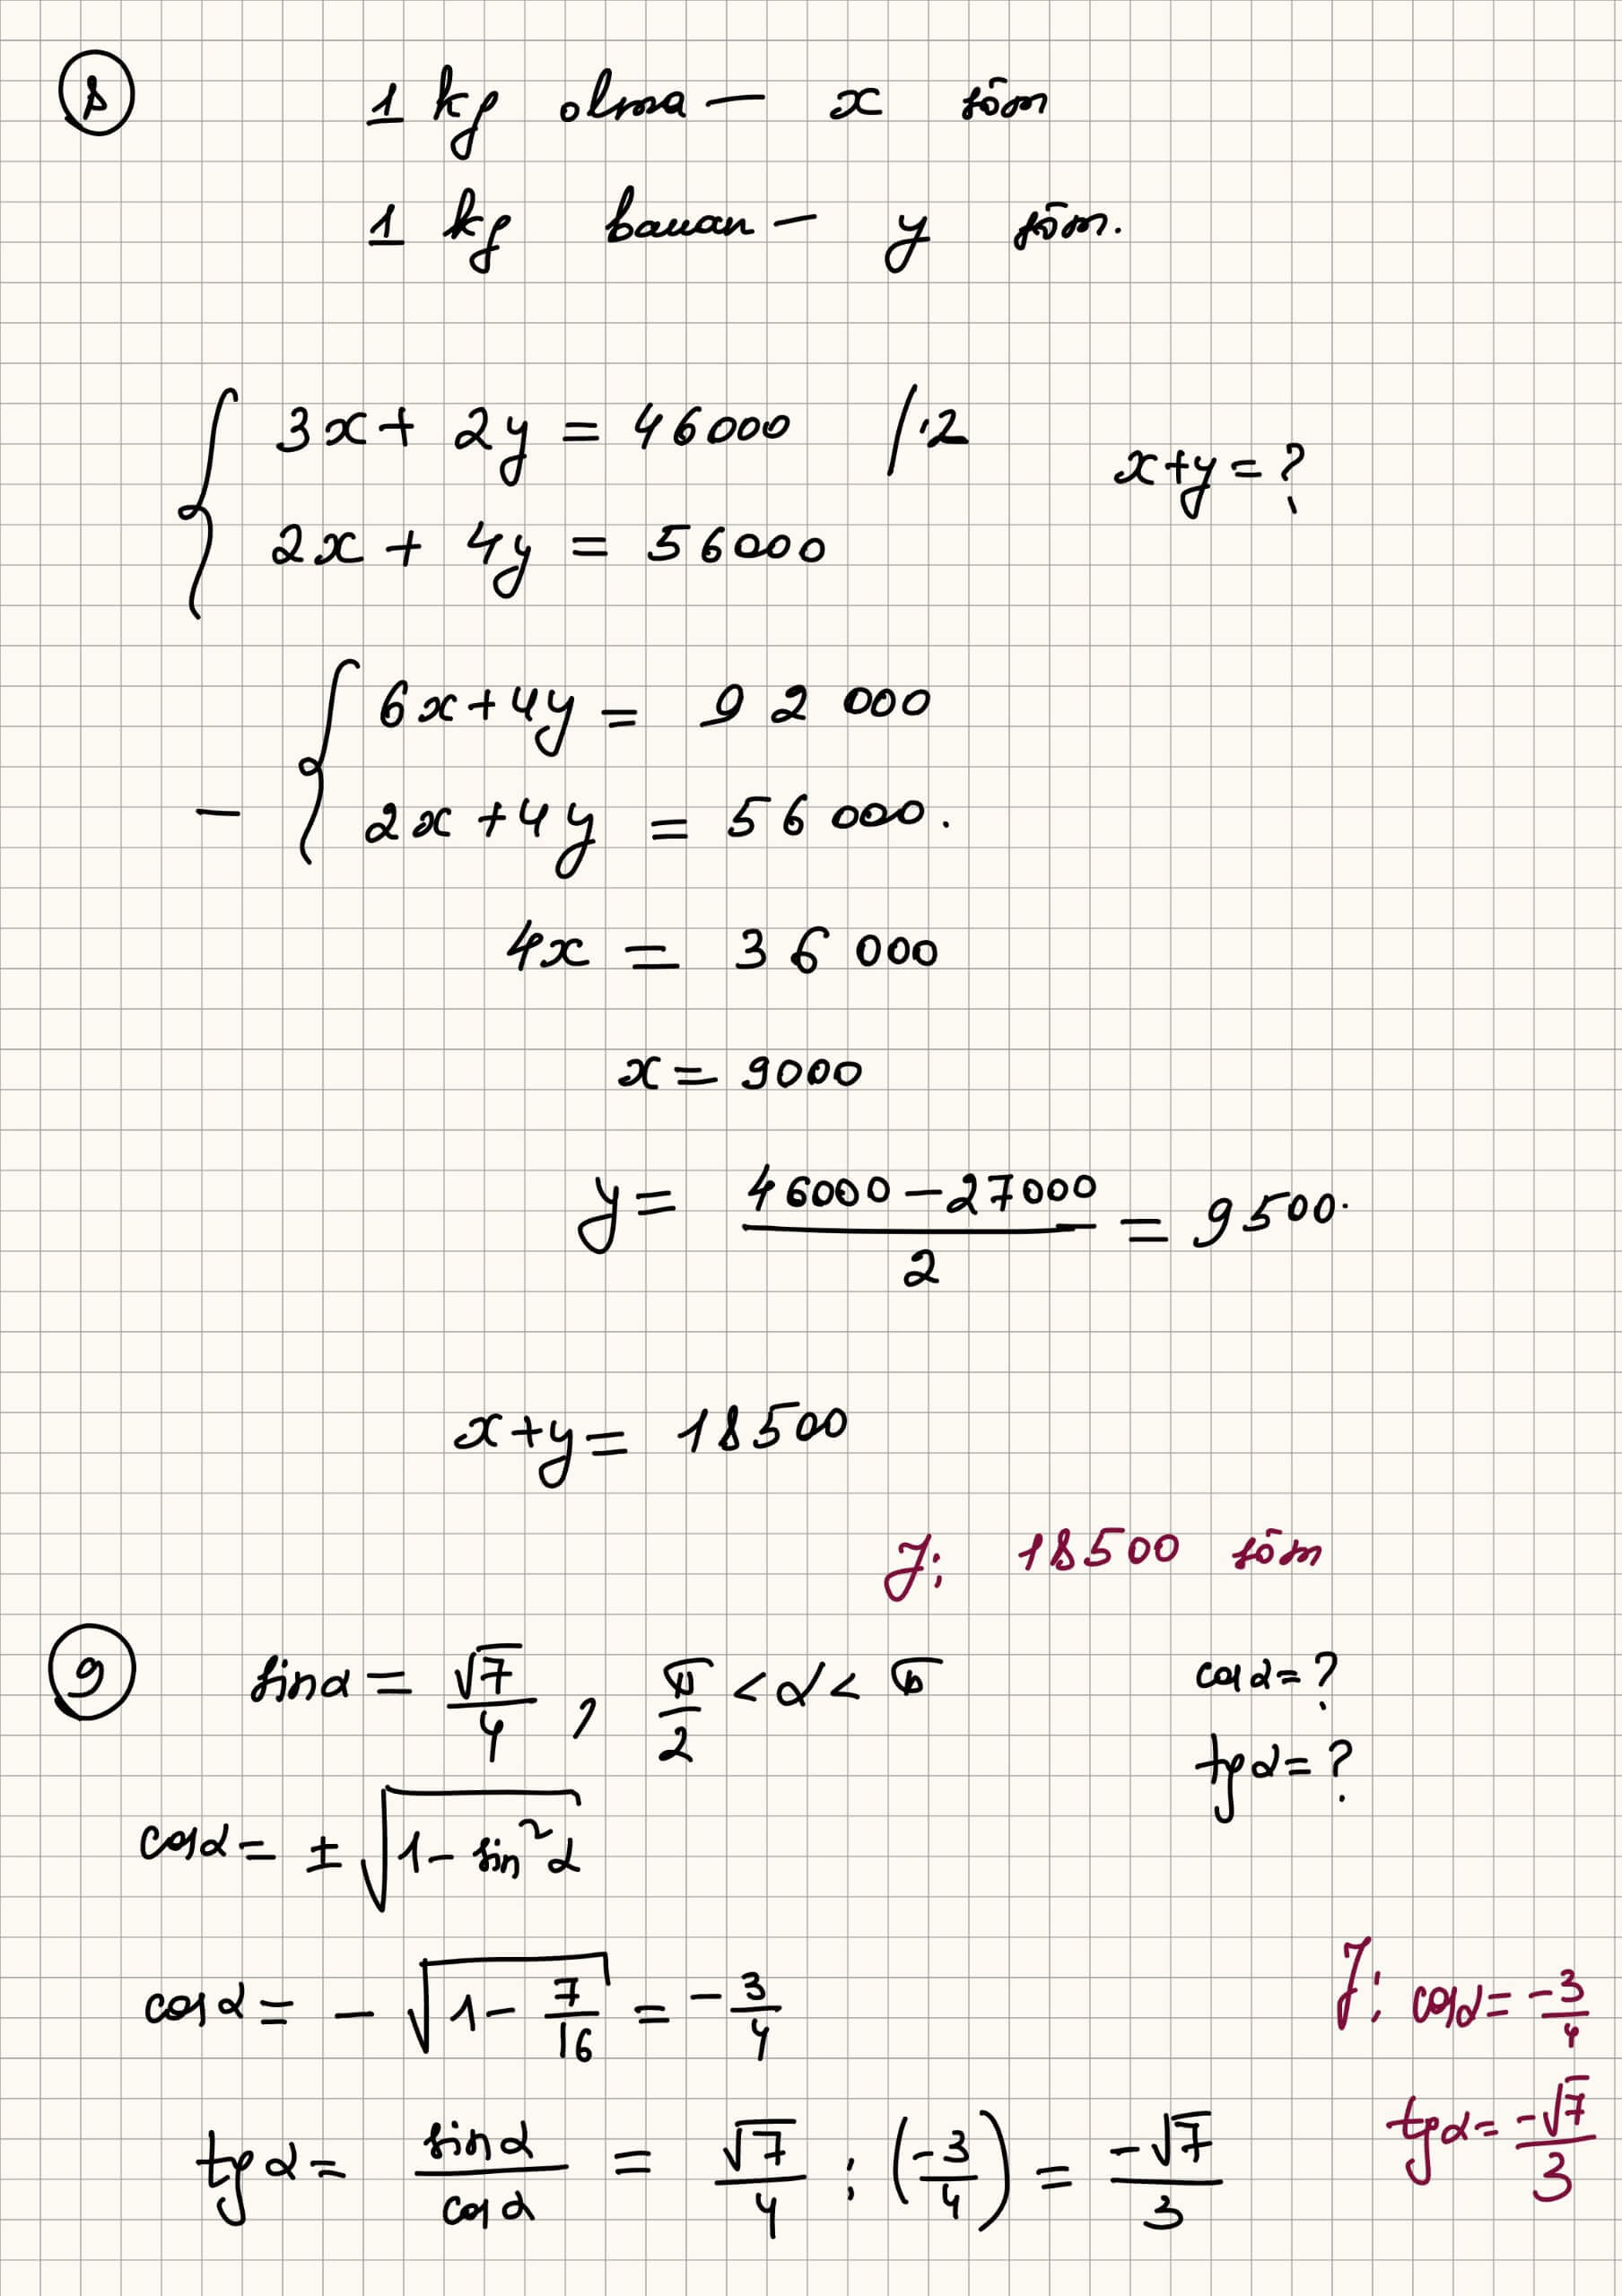 8
1 kg olma — x sōm
1 kg banan — y sōm.
3x + 2y = 46000 /·2
x+y = ?
2x + 4y = 56000
6x+4y = 92 000
—
2x+4y = 56 000.
4x = 36 000
x = 9000
y = (46000 − 27000)/2 = 9500.
x+y = 18500
J: 18500 sōm
9
sinα = √7/4 , π/2 < α < π
cosα = ?
tgα = ?
cosα = ± √(1 − sin²α)
cosα = − √(1 − 7/16) = −3/4
J: cosα = −3/4
tgα = sinα/cosα = √7/4 : (−3/4) = −√7/3
tgα = −√7/3